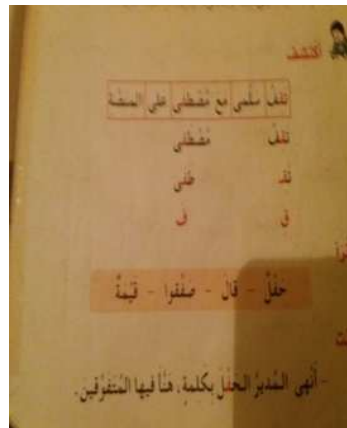 أكتشف
تقف سلمى مع مصطفى على المنصة
تقف مُصْطفى
تقـ طفى
ق ف
حَفْلٌ - قالَ - صفّقوا - قَيِّمَةٌ
- أَنْهى المُديرُ الحَفْلَ بِكَلِمَةٍ، هَنَّأَ فيها المُتَفَوِّقينَ.